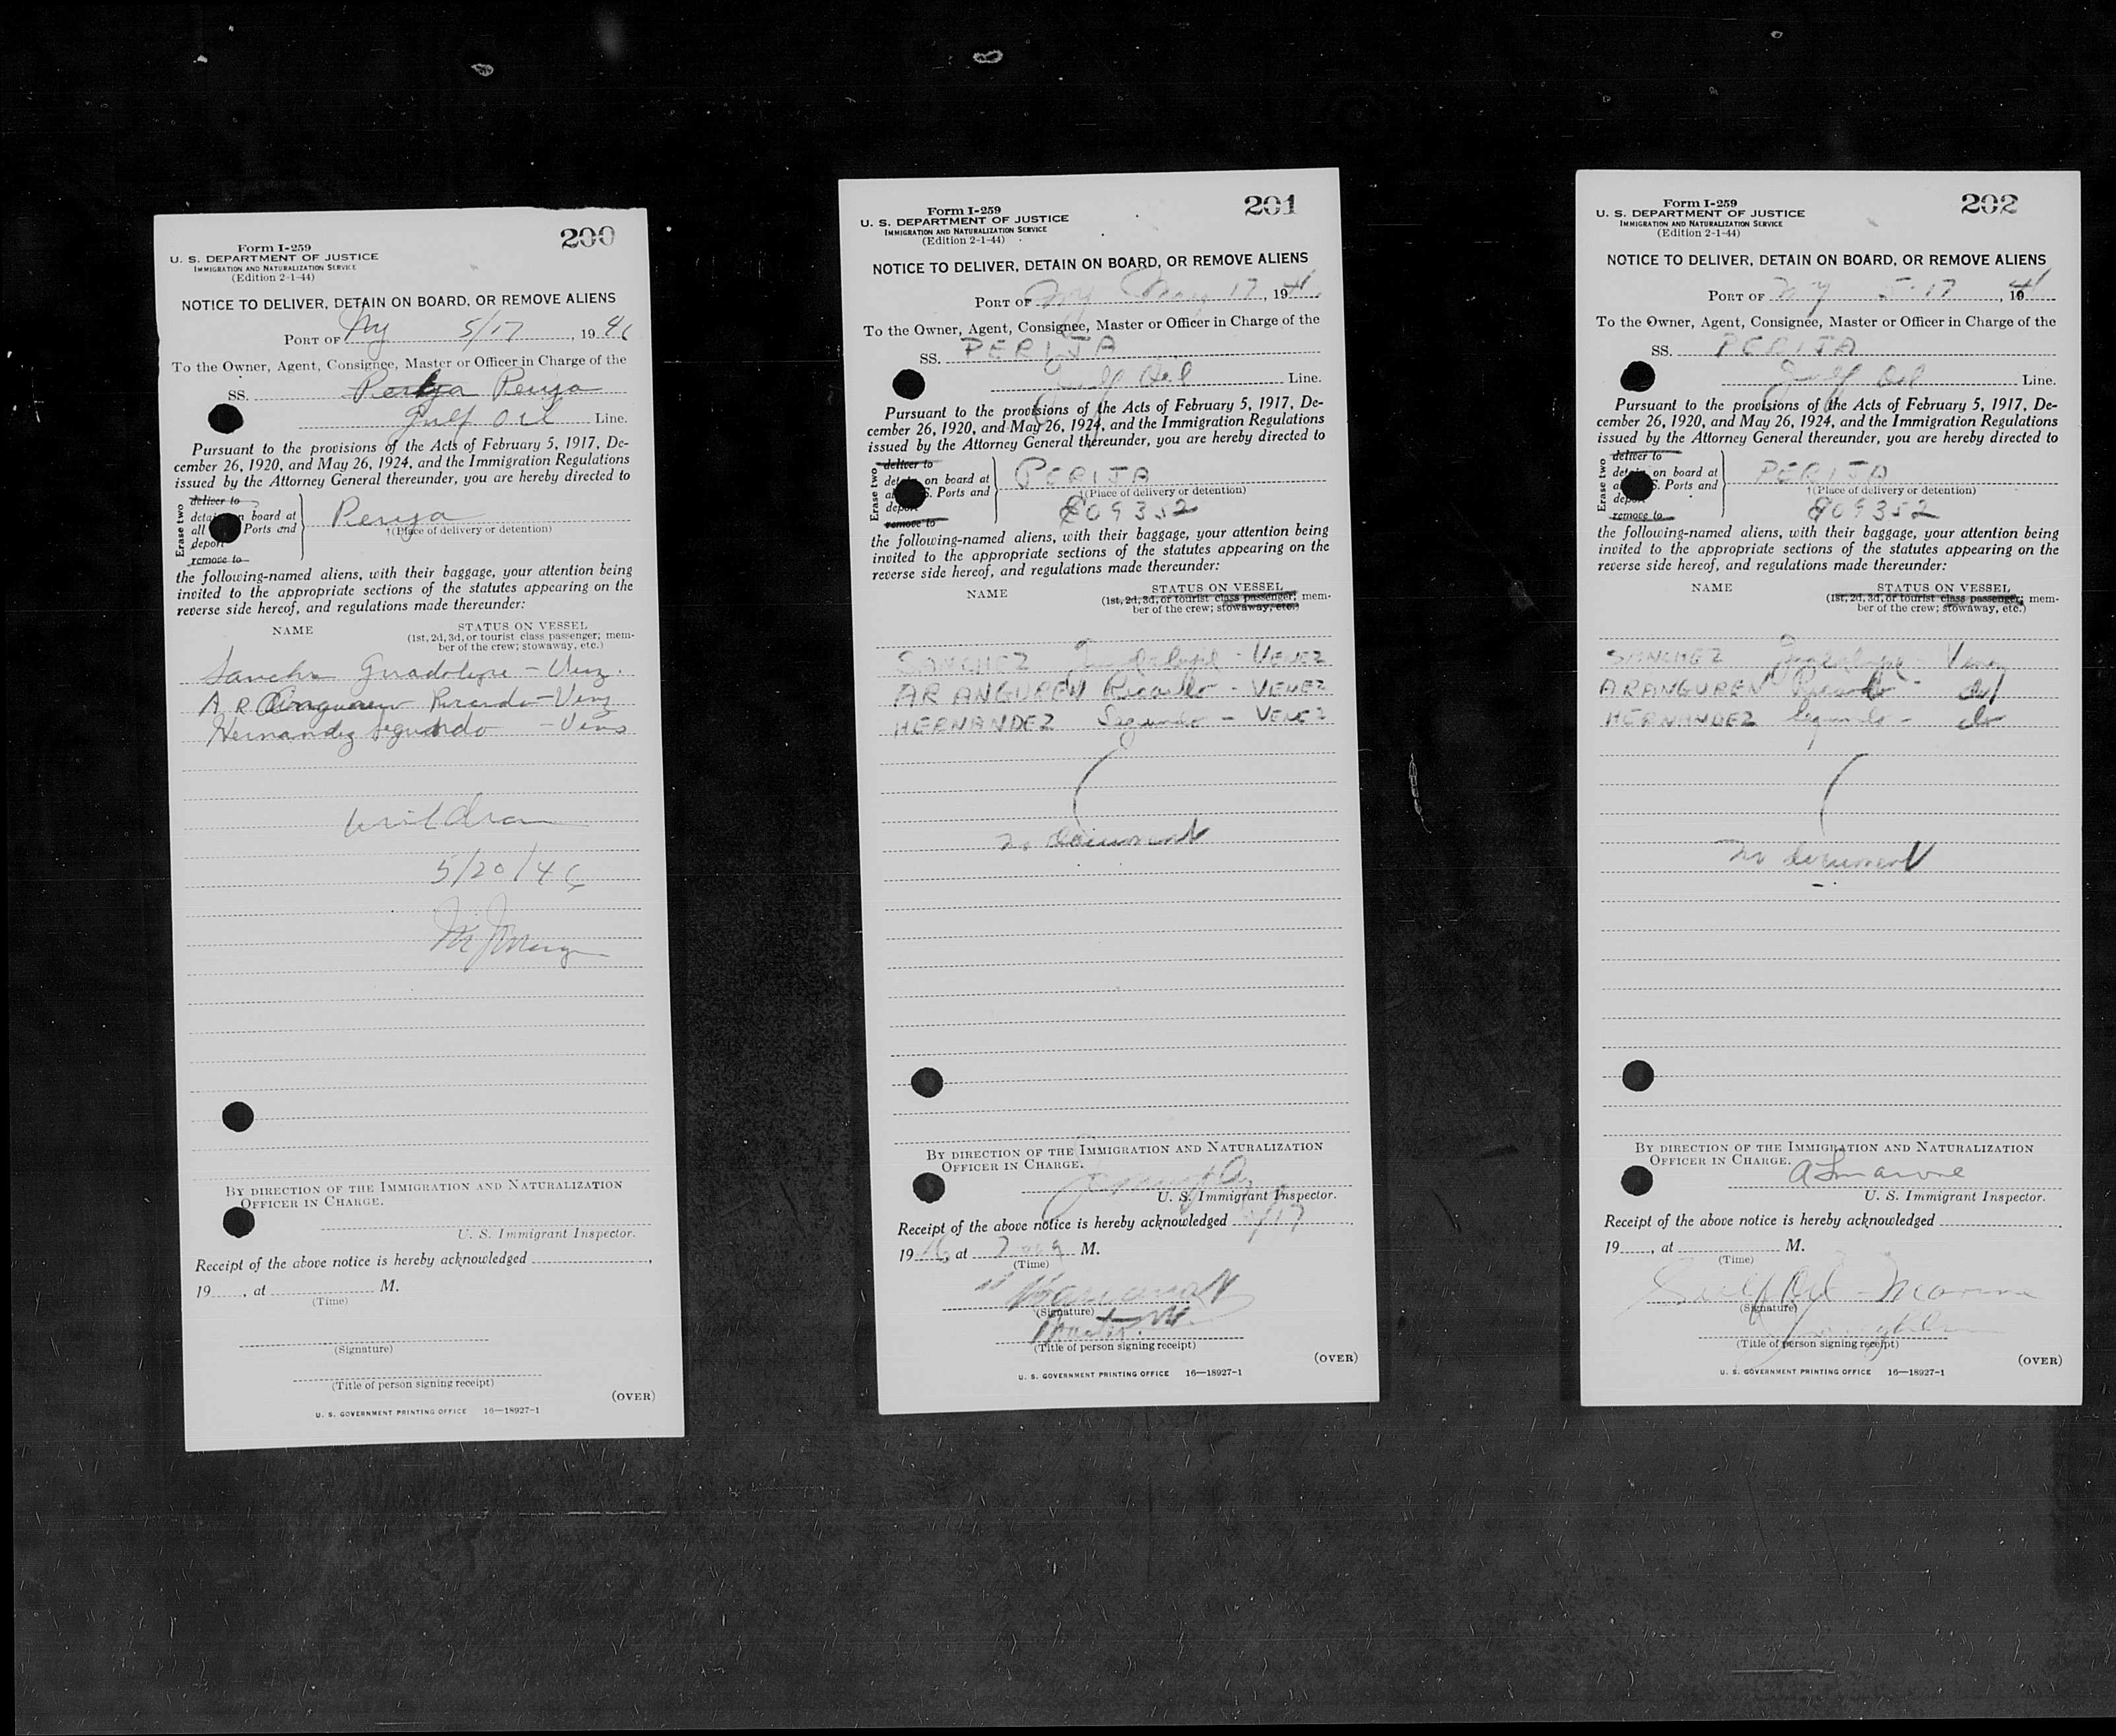 200
Form I-259
U. S. DEPARTMENT OF JUSTICE
IMMIGRATION AND NATURALIZATION SERVICE
(Edition 2-1-44)
NOTICE TO DELIVER, DETAIN ON BOARD, OR REMOVE ALIENS
PORT OF NY 5/17, 1946
To the Owner, Agent, Consignee, Master or Officer in Charge of the
SS. Perija
Gulf Oil Line.
Pursuant to the provisions of the Acts of February 5, 1917, De-
cember 26, 1920, and May 26, 1924, and the Immigration Regulations
issued by the Attorney General thereunder, you are hereby directed to
Erase two
deliver to
detain on board at
all Ports and
deport
remove to
Perija
†(Place of delivery or detention)
the following-named aliens, with their baggage, your attention being
invited to the appropriate sections of the statutes appearing on the
reverse side hereof, and regulations made thereunder:
NAME STATUS ON VESSEL
(1st, 2d, 3d, or tourist class passenger; mem-
ber of the crew; stowaway, etc.)
Guadolupe - Venz.
Ricardo - Venz
Hernandez Segundo - Venz
5/20/46
BY DIRECTION OF THE IMMIGRATION AND NATURALIZATION
OFFICER IN CHARGE.
U. S. Immigrant Inspector.
Receipt of the above notice is hereby acknowledged
19, at M.
(Time)
(Signature)
(Title of person signing receipt)
(OVER)
U. S. GOVERNMENT PRINTING OFFICE 16—18927-1
201
Form I-259
U. S. DEPARTMENT OF JUSTICE
IMMIGRATION AND NATURALIZATION SERVICE
(Edition 2-1-44)
NOTICE TO DELIVER, DETAIN ON BOARD, OR REMOVE ALIENS
PORT OF NY May 17, 194
To the Owner, Agent, Consignee, Master or Officer in Charge of the
SS. PERIJA
Gulf Oil Line.
Pursuant to the provisions of the Acts of February 5, 1917, De-
cember 26, 1920, and May 26, 1924, and the Immigration Regulations
issued by the Attorney General thereunder, you are hereby directed to
Erase two
deliver to
on board at
S. Ports and
deport
remove to
PERIJA
†(Place of delivery or detention)
809352
the following-named aliens, with their baggage, your attention being
invited to the appropriate sections of the statutes appearing on the
reverse side hereof, and regulations made thereunder:
NAME STATUS ON VESSEL
(1st, 2d, 3d, or tourist class passenger; mem-
ber of the crew; stowaway, etc.)
SANCHEZ Guadalupe - VENEZ
ARANGUREN Ricardo - VENEZ
HERNANDEZ Segundo - VENEZ
no document
BY DIRECTION OF THE IMMIGRATION AND NATURALIZATION
OFFICER IN CHARGE.
U. S. Immigrant Inspector.
Receipt of the above notice is hereby acknowledged /17
19, at M.
(Time)
(Signature)
Master
(Title of person signing receipt)
(OVER)
U. S. GOVERNMENT PRINTING OFFICE 16—18927-1
202
Form I-259
U. S. DEPARTMENT OF JUSTICE
IMMIGRATION AND NATURALIZATION SERVICE
(Edition 2-1-44)
NOTICE TO DELIVER, DETAIN ON BOARD, OR REMOVE ALIENS
PORT OF NY 5-17, 194
To the Owner, Agent, Consignee, Master or Officer in Charge of the
SS. PERIJA
Gulf Oil Line.
Pursuant to the provisions of the Acts of February 5, 1917, De-
cember 26, 1920, and May 26, 1924, and the Immigration Regulations
issued by the Attorney General thereunder, you are hereby directed to
Erase two
deliver to
on board at
S. Ports and
remove to
PERIJA
†(Place of delivery or detention)
809352
the following-named aliens, with their baggage, your attention being
invited to the appropriate sections of the statutes appearing on the
reverse side hereof, and regulations made thereunder:
NAME STATUS ON VESSEL
(1st, 2d, 3d, or tourist class passenger; mem-
ber of the crew; stowaway, etc.)
SANCHEZ Guadalupe - Venez
ARANGUREN Ricardo - do
HERNANDEZ Segundo - do
no document
BY DIRECTION OF THE IMMIGRATION AND NATURALIZATION
OFFICER IN CHARGE.
U. S. Immigrant Inspector.
Receipt of the above notice is hereby acknowledged
19, at M.
(Time)
Gulf Oil - Marine
(Signature)
(Title of person signing receipt)
(OVER)
U. S. GOVERNMENT PRINTING OFFICE 16—18927-1